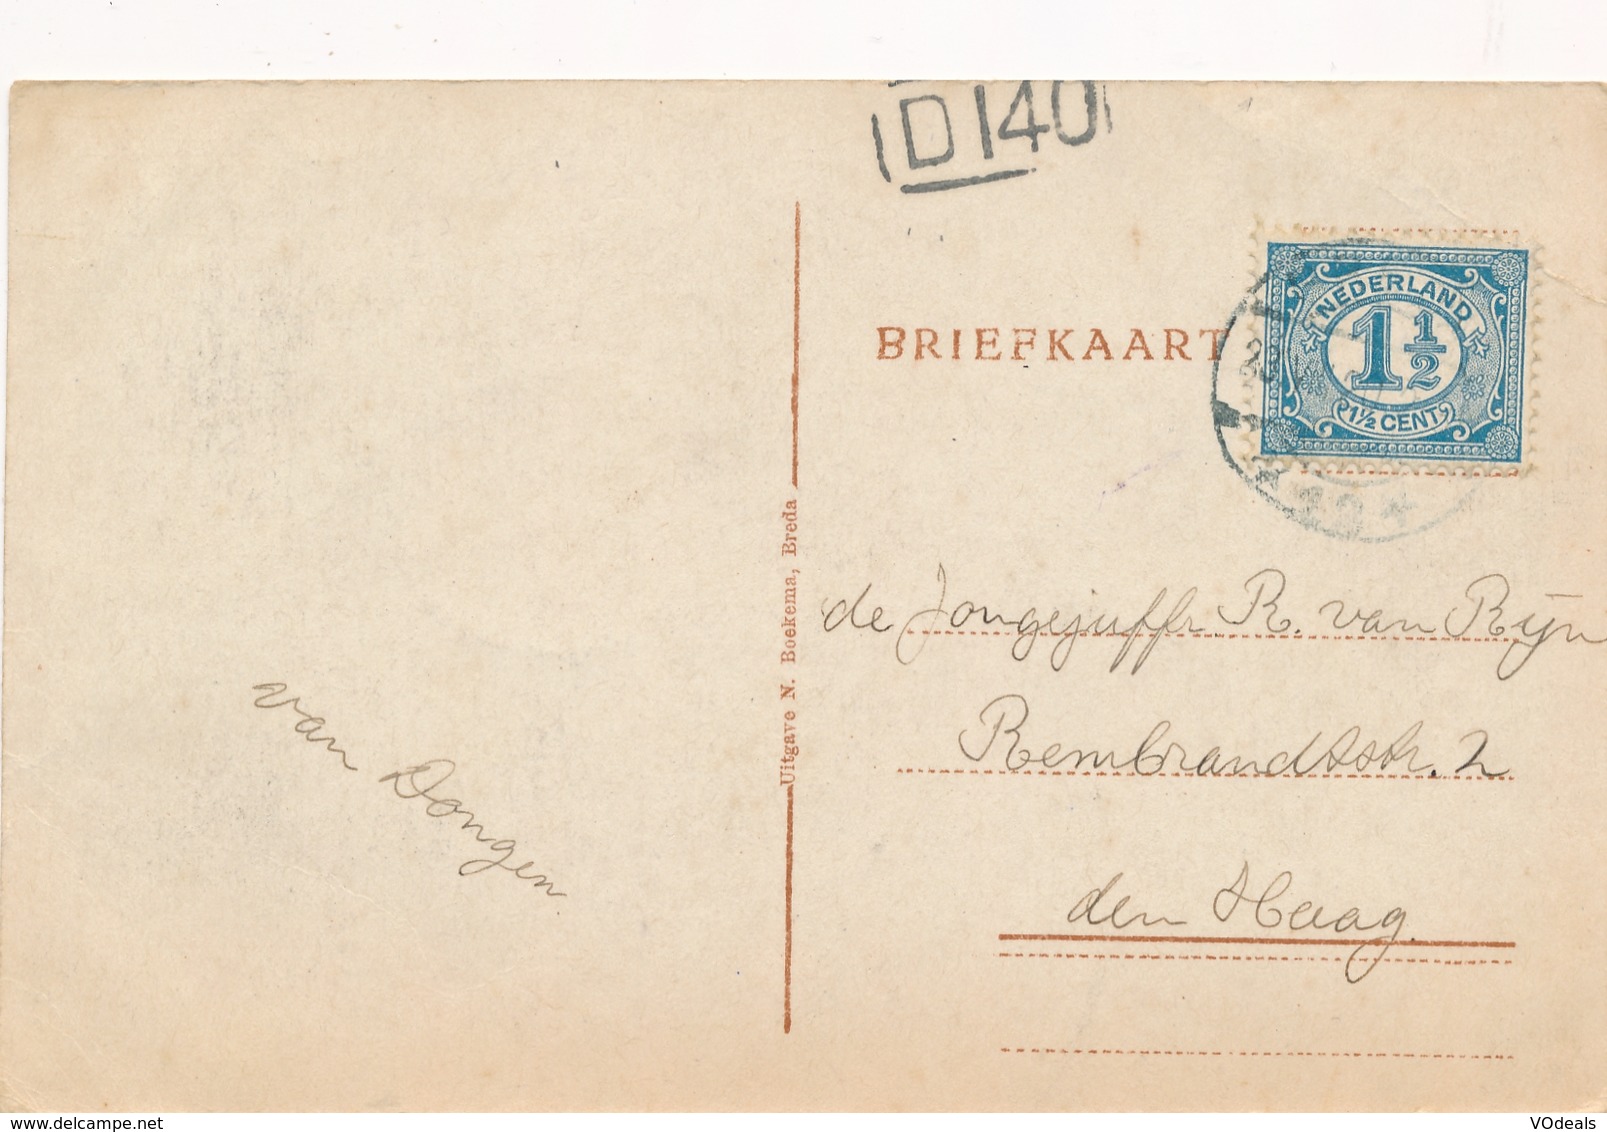 D 140
BRIEFKAART
NEDERLAND
1 1/2
1 1/2 CENT
Uitgave N. Boekema, Breda
van Dongen
de Jongejuffr. R. van Rijn
Rembrandtstr. 2
den Haag.
www.delcampe.net
VOdeals